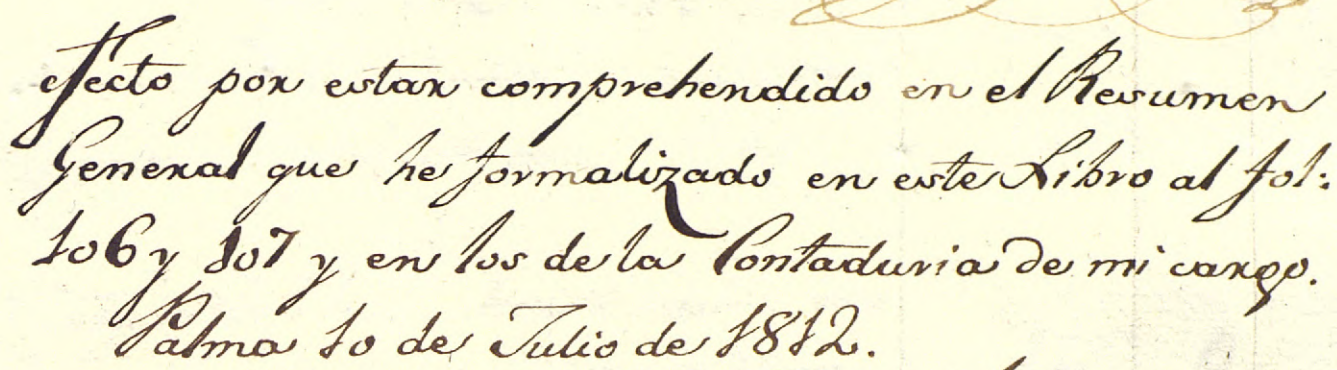 efecto por estar comprehendido en el Resumen
General que he formalizado en este Libro al fol:
106 y 107 y en los de la Contaduria de mi cargo.
Palma 10 de Julio de 1812.